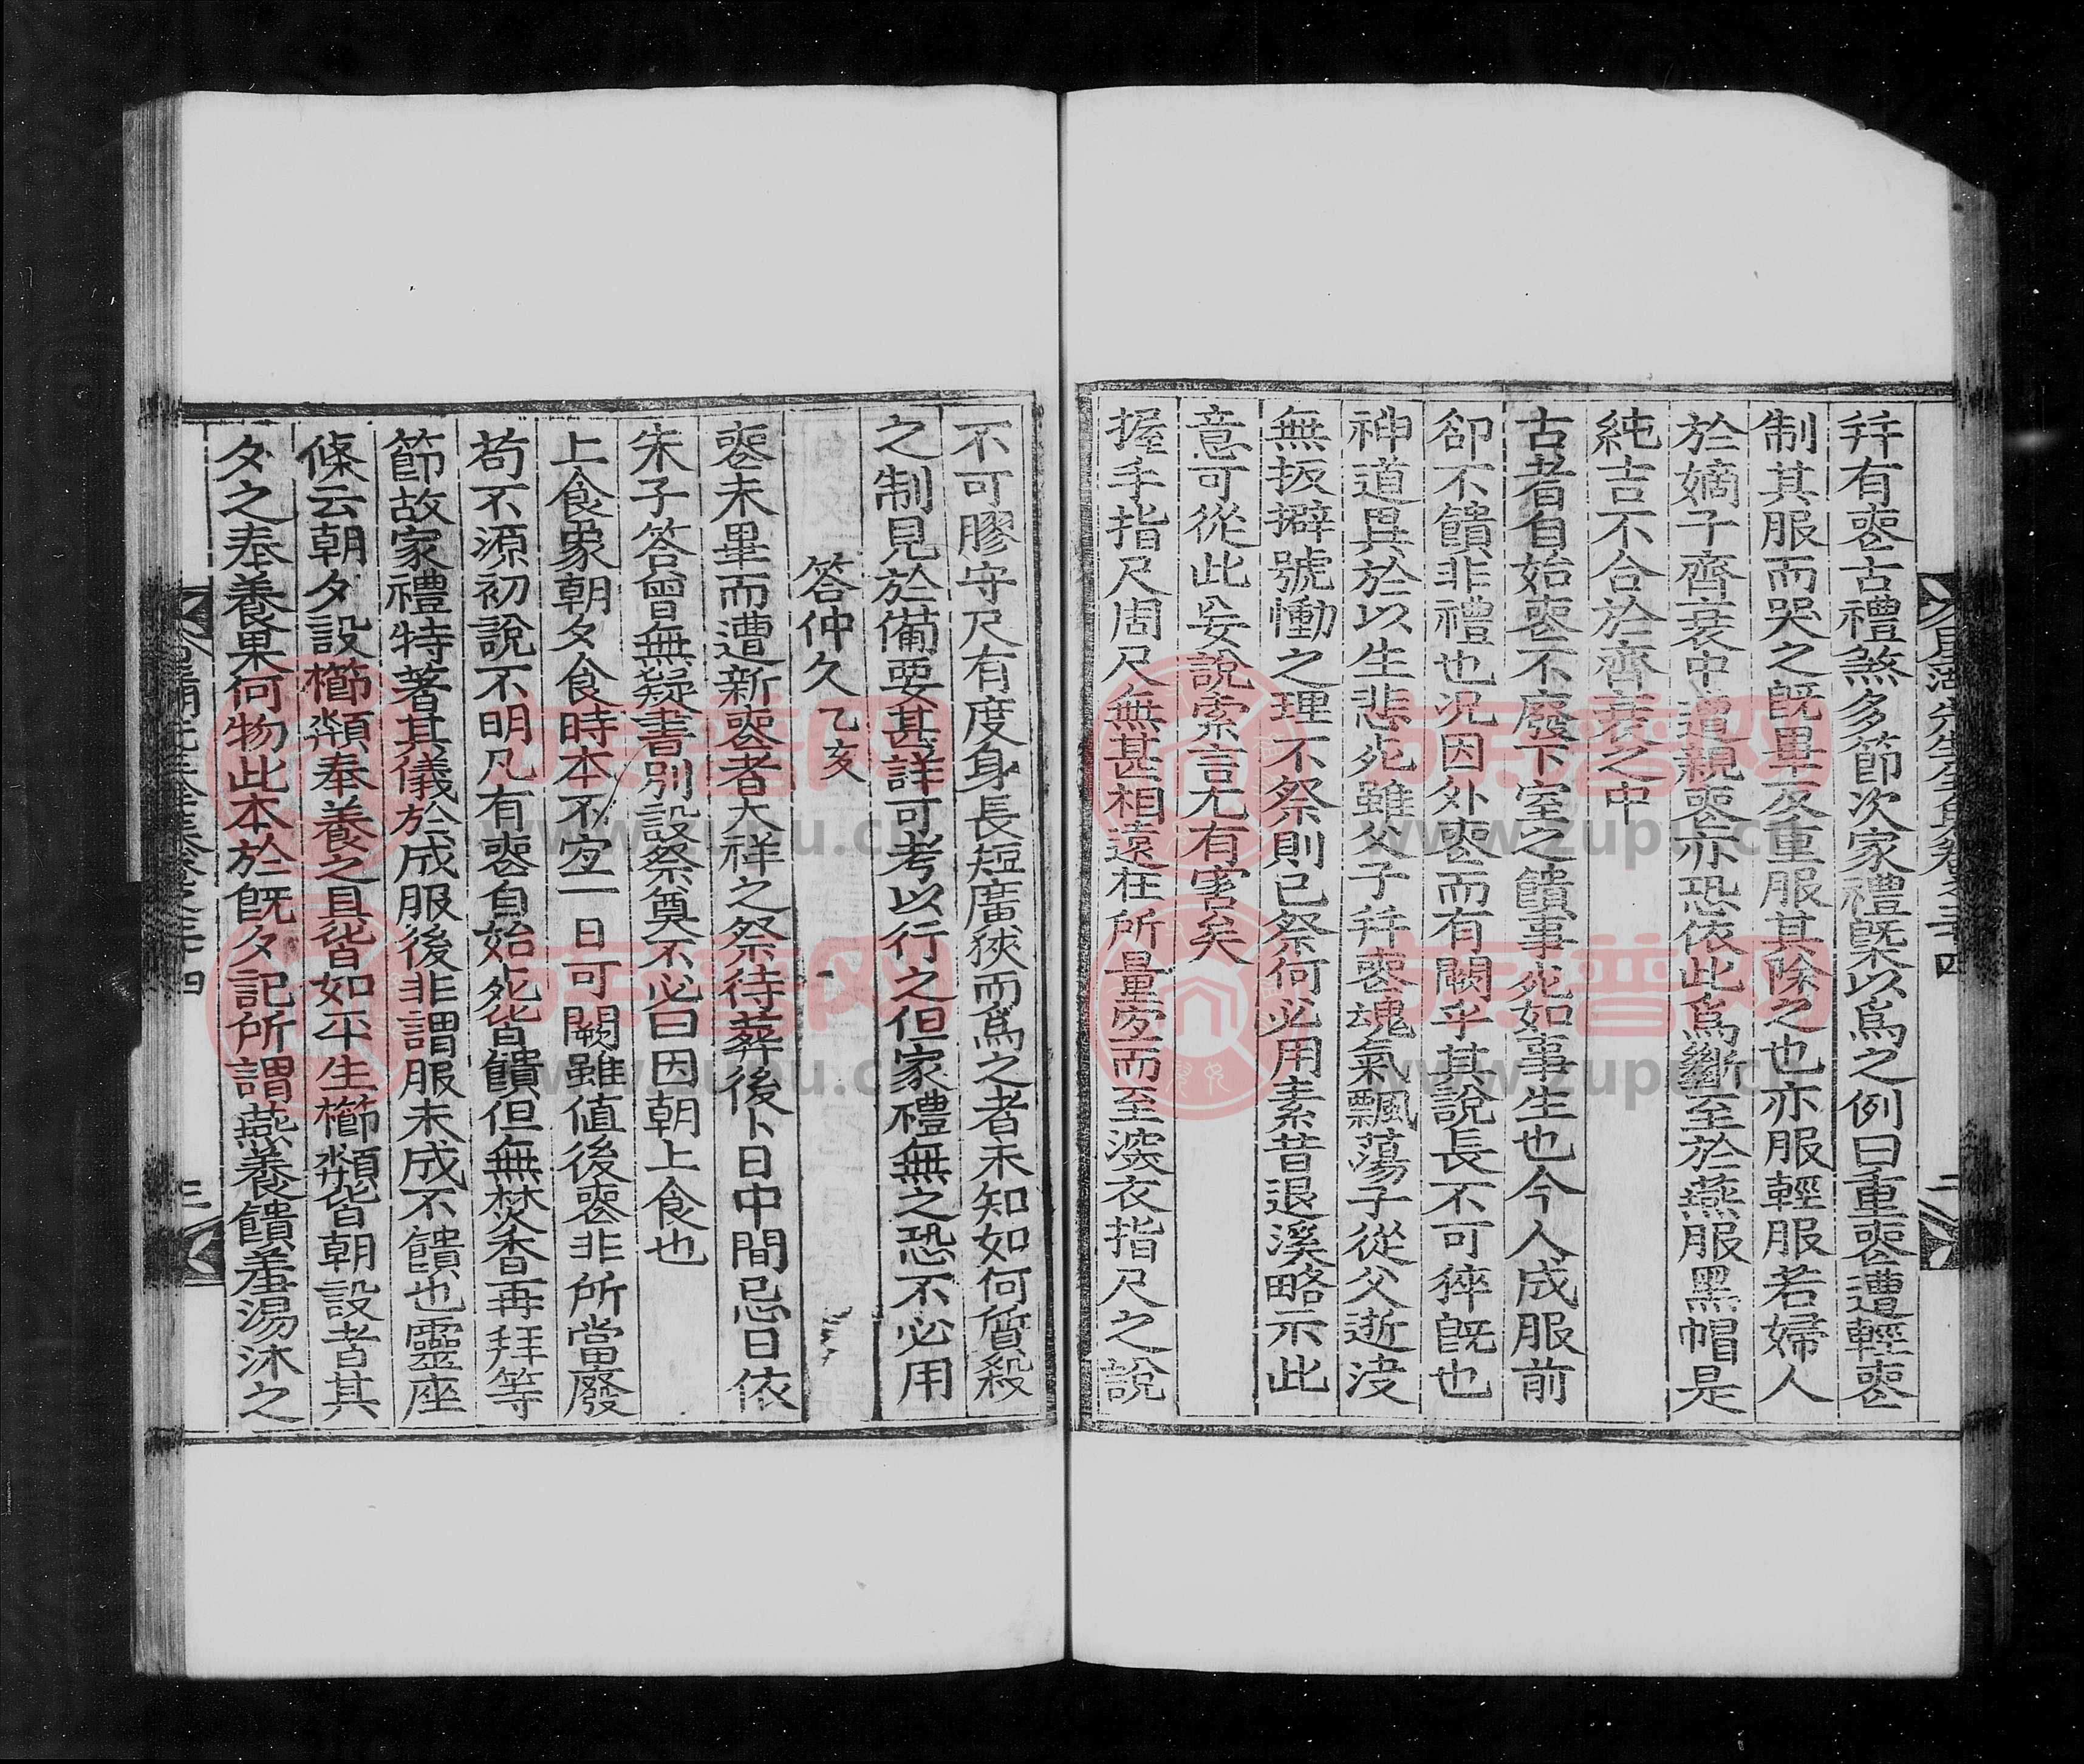 幷有喪古禮煞多節次家禮槩以爲之例曰重喪遭輕喪
制其服而哭之旣畢反重服其除之也亦服輕服若婦人
於嫡子齊衰中遭親喪亦恐依此爲斷至於燕服黑帽是
純吉不合於齊衰之中
古者自始喪不廢下室之饋事死如事生也今人成服前
卻不饋非禮也况因外喪而有闕乎其說長不可猝旣也
神道異於以生悲死雖父子幷喪魂氣飄蕩子從父逝沒
無扳擗號慟之理不祭則已祭何必用素昔退溪略示此
意可從此妄說索言尤有害矣
握手指尺周尺無甚相遠在所量宜而至深衣指尺之說
不可膠守尺有度身長短廣狹而爲之者未知如何質殺
之制見於備要甚詳可考以行之但家禮無之恐不必用
答仲久乙亥
喪未畢而遭新喪者大祥之祭待葬後卜日中間忌日依
朱子答曾無疑書別設祭奠不必曰因朝上食也
上食象朝夕食時本不宜一日可闕雖值後喪非所當廢
苟不源初說不明凡有喪自始死皆饋但無焚香再拜等
節故家禮特著其儀於成服後非謂服未成不饋也靈座
條云朝夕設櫛頮奉養之具皆如平生櫛頮皆朝設者其
夕之奉養果何物此本於旣夕記所謂燕養饋羞湯沐之